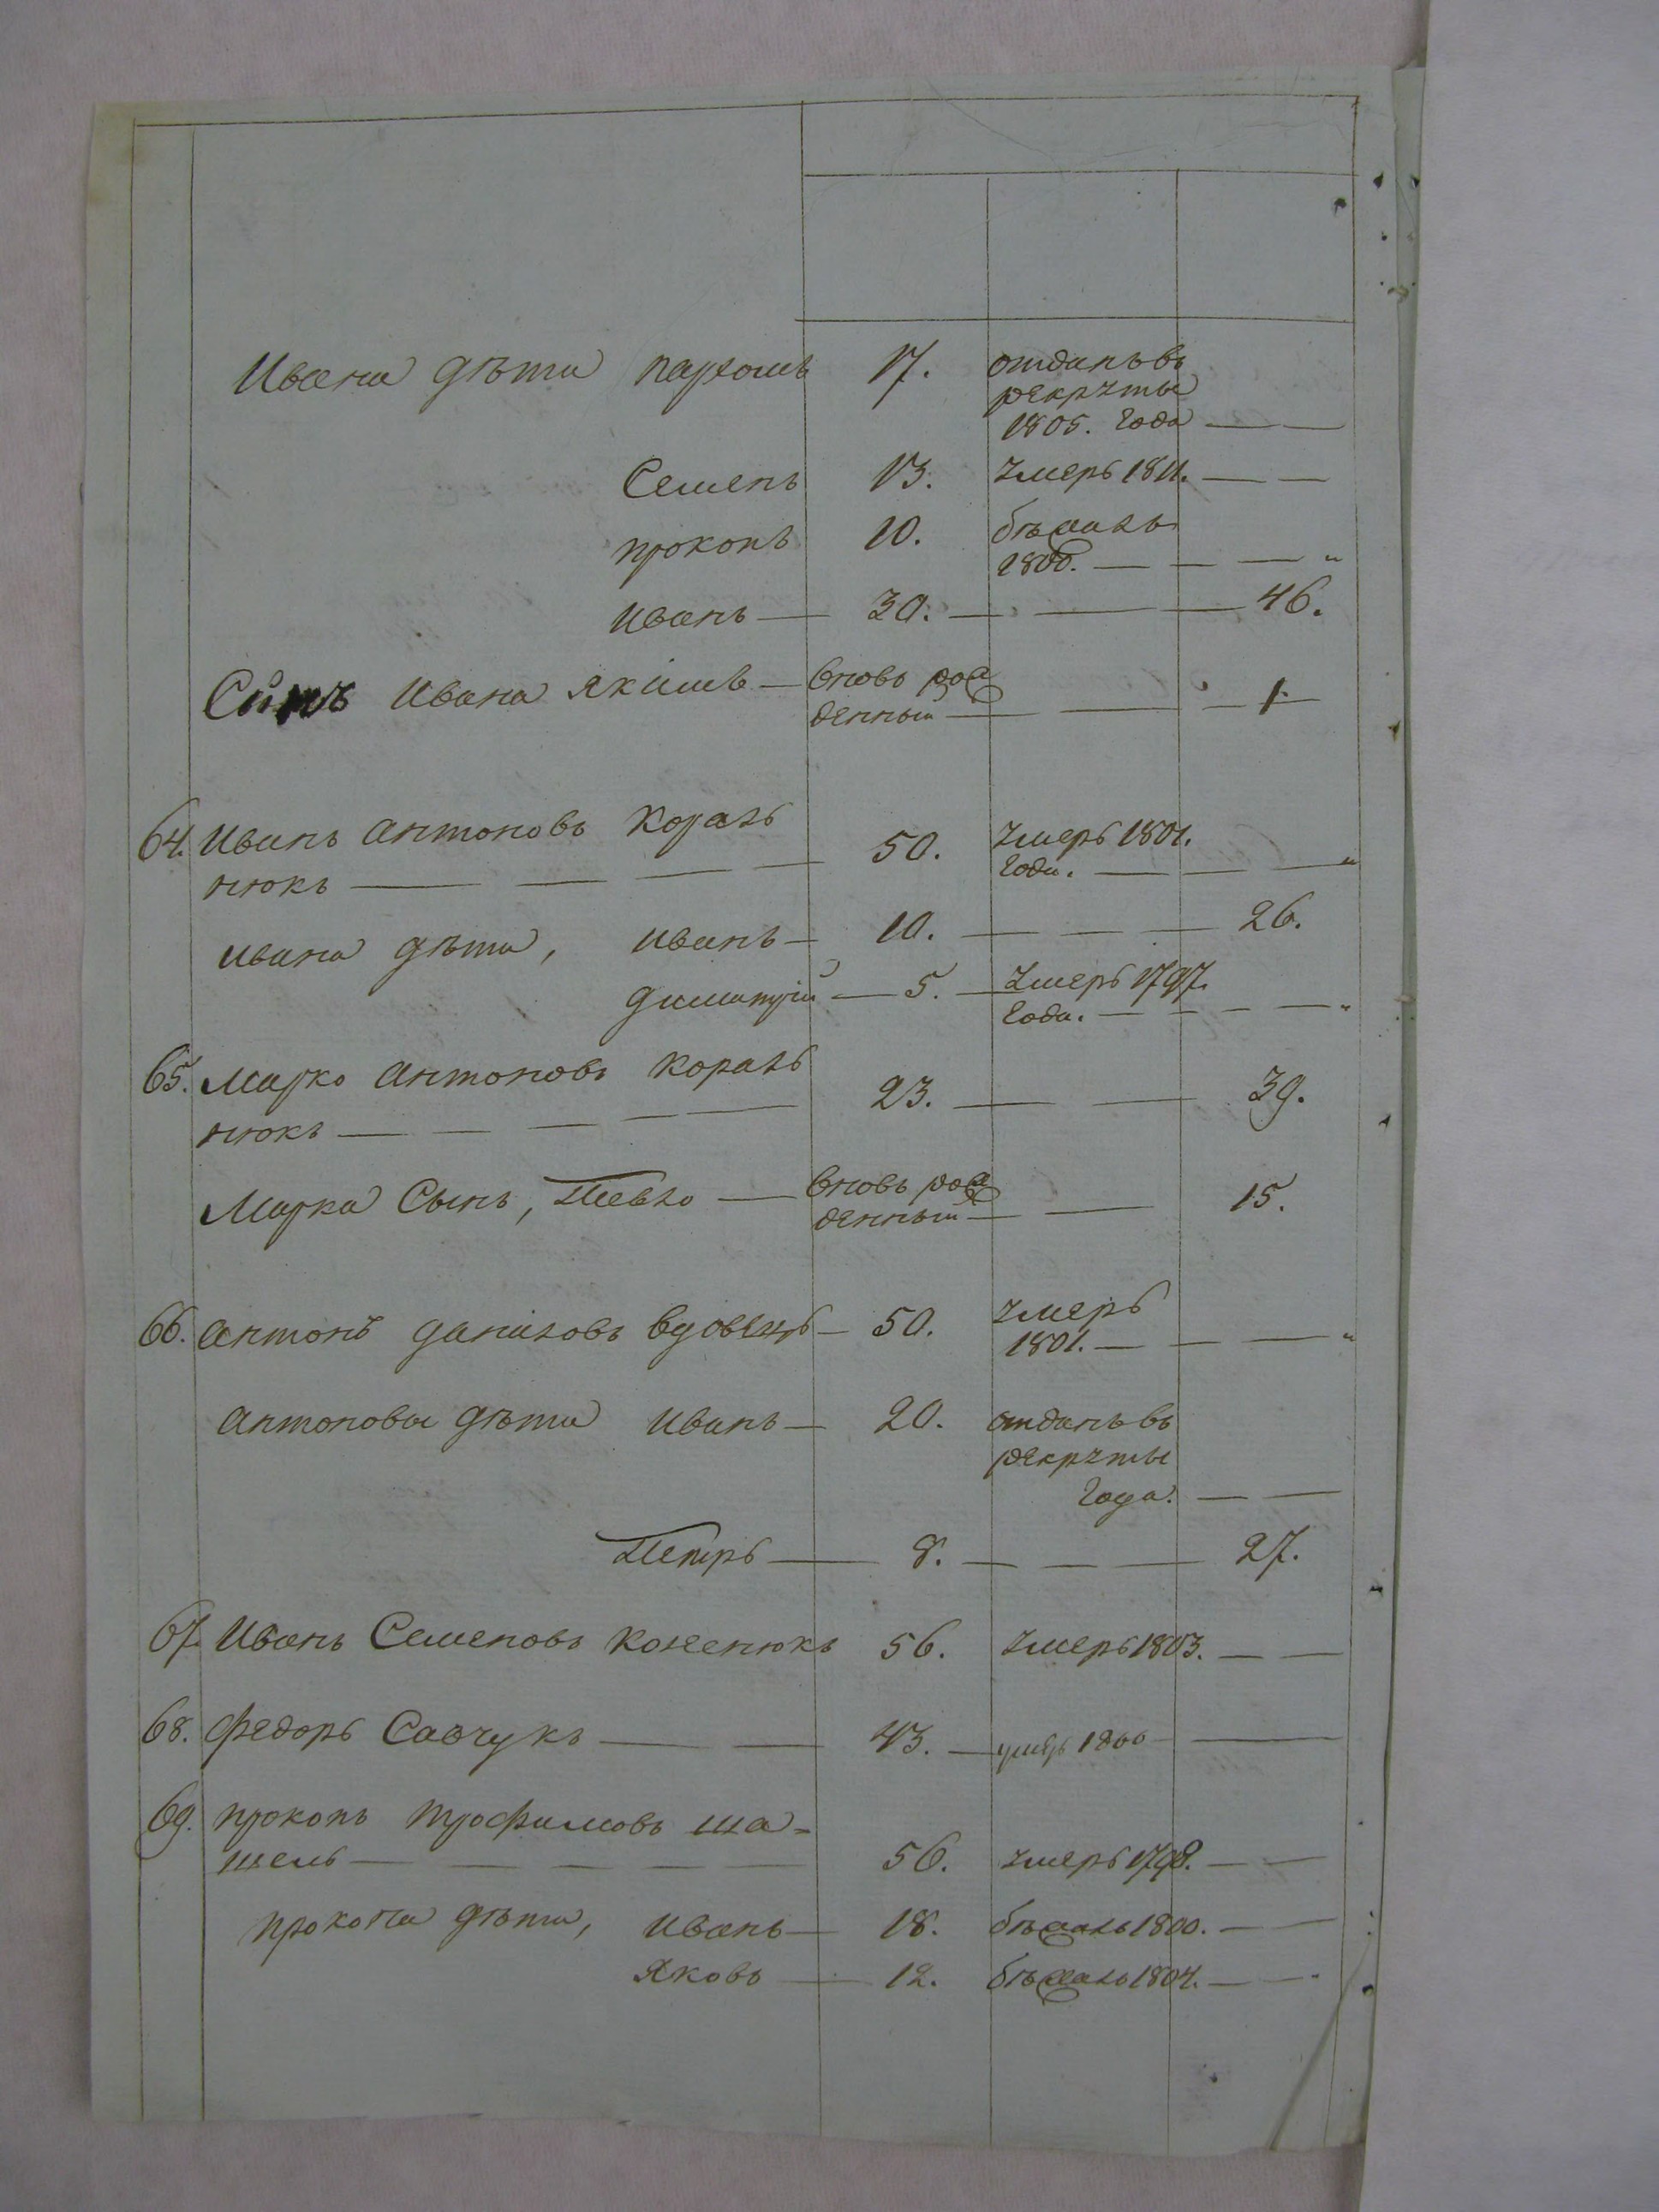 Ивана дѣти пархомъ 17. отданъ въ
рекруты
1805. года
Семенъ 13. умеръ 1811.
прокопъ 10. бѣжалъ
1800.
иванъ 30. 46.
Сынъ ивана якимъ вновь рож
денный 1
64. иванъ антоновъ Король
нюкъ 50. умеръ 1801.
года.
ивана дѣти, иванъ 10. 26.
димитрій 5. умеръ 1797.
года.
65. марко антоновъ король
нюкъ 23. 39.
марка Сынъ, Павло вновь рож
денный 15.
66. антонъ даниловъ вдовецъ 50. умеръ
1801.
антоновы дѣти иванъ 20. отданъ въ
рекруты
года.
Петръ 8. 27.
67. иванъ Семеновъ 56. умеръ 1803.
68. федоръ Савчукъ 43. умеръ 1800
69. прокопъ трофимовъ ша=
шель 56. умеръ 1798.
прокопа дѣти, иванъ 18. бѣжалъ 1800.
яковъ 12. бѣжалъ 1804.